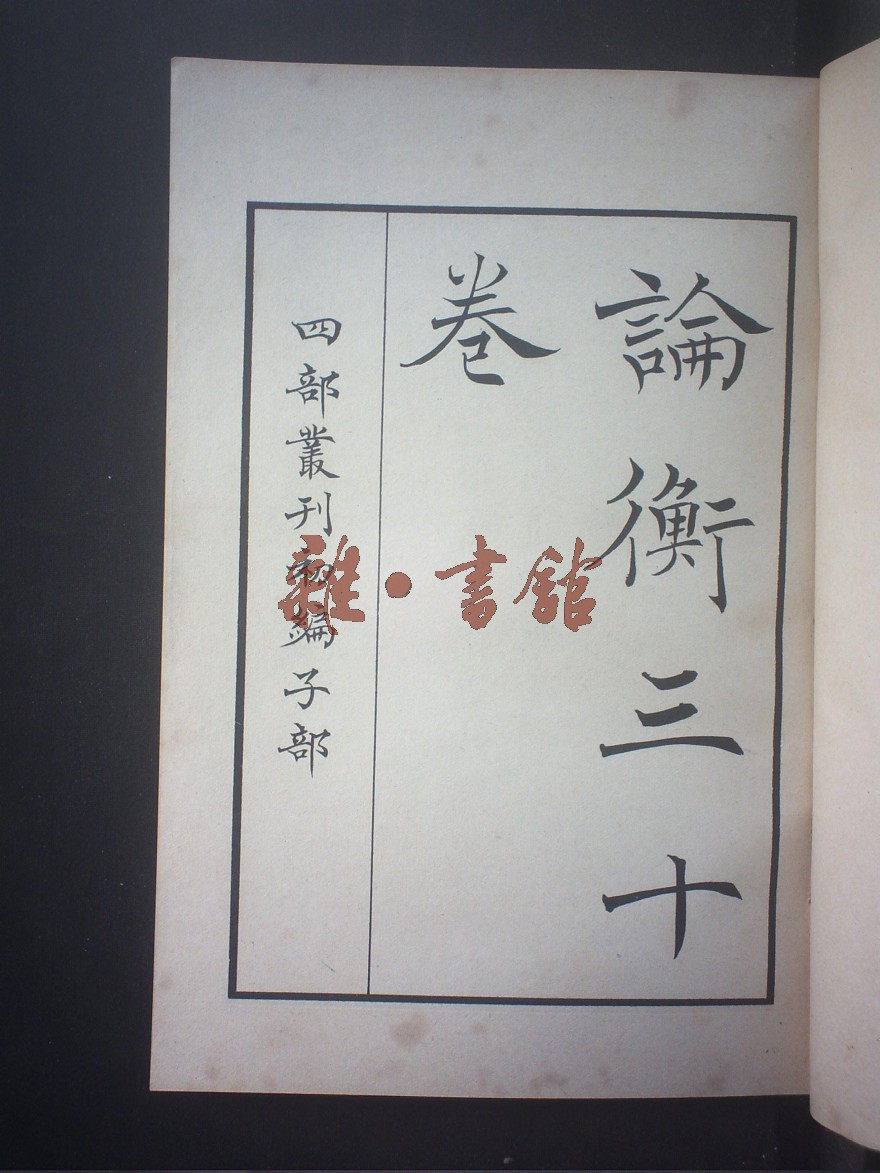 論衡三十
卷
四部叢刊初編子部
雜·書館